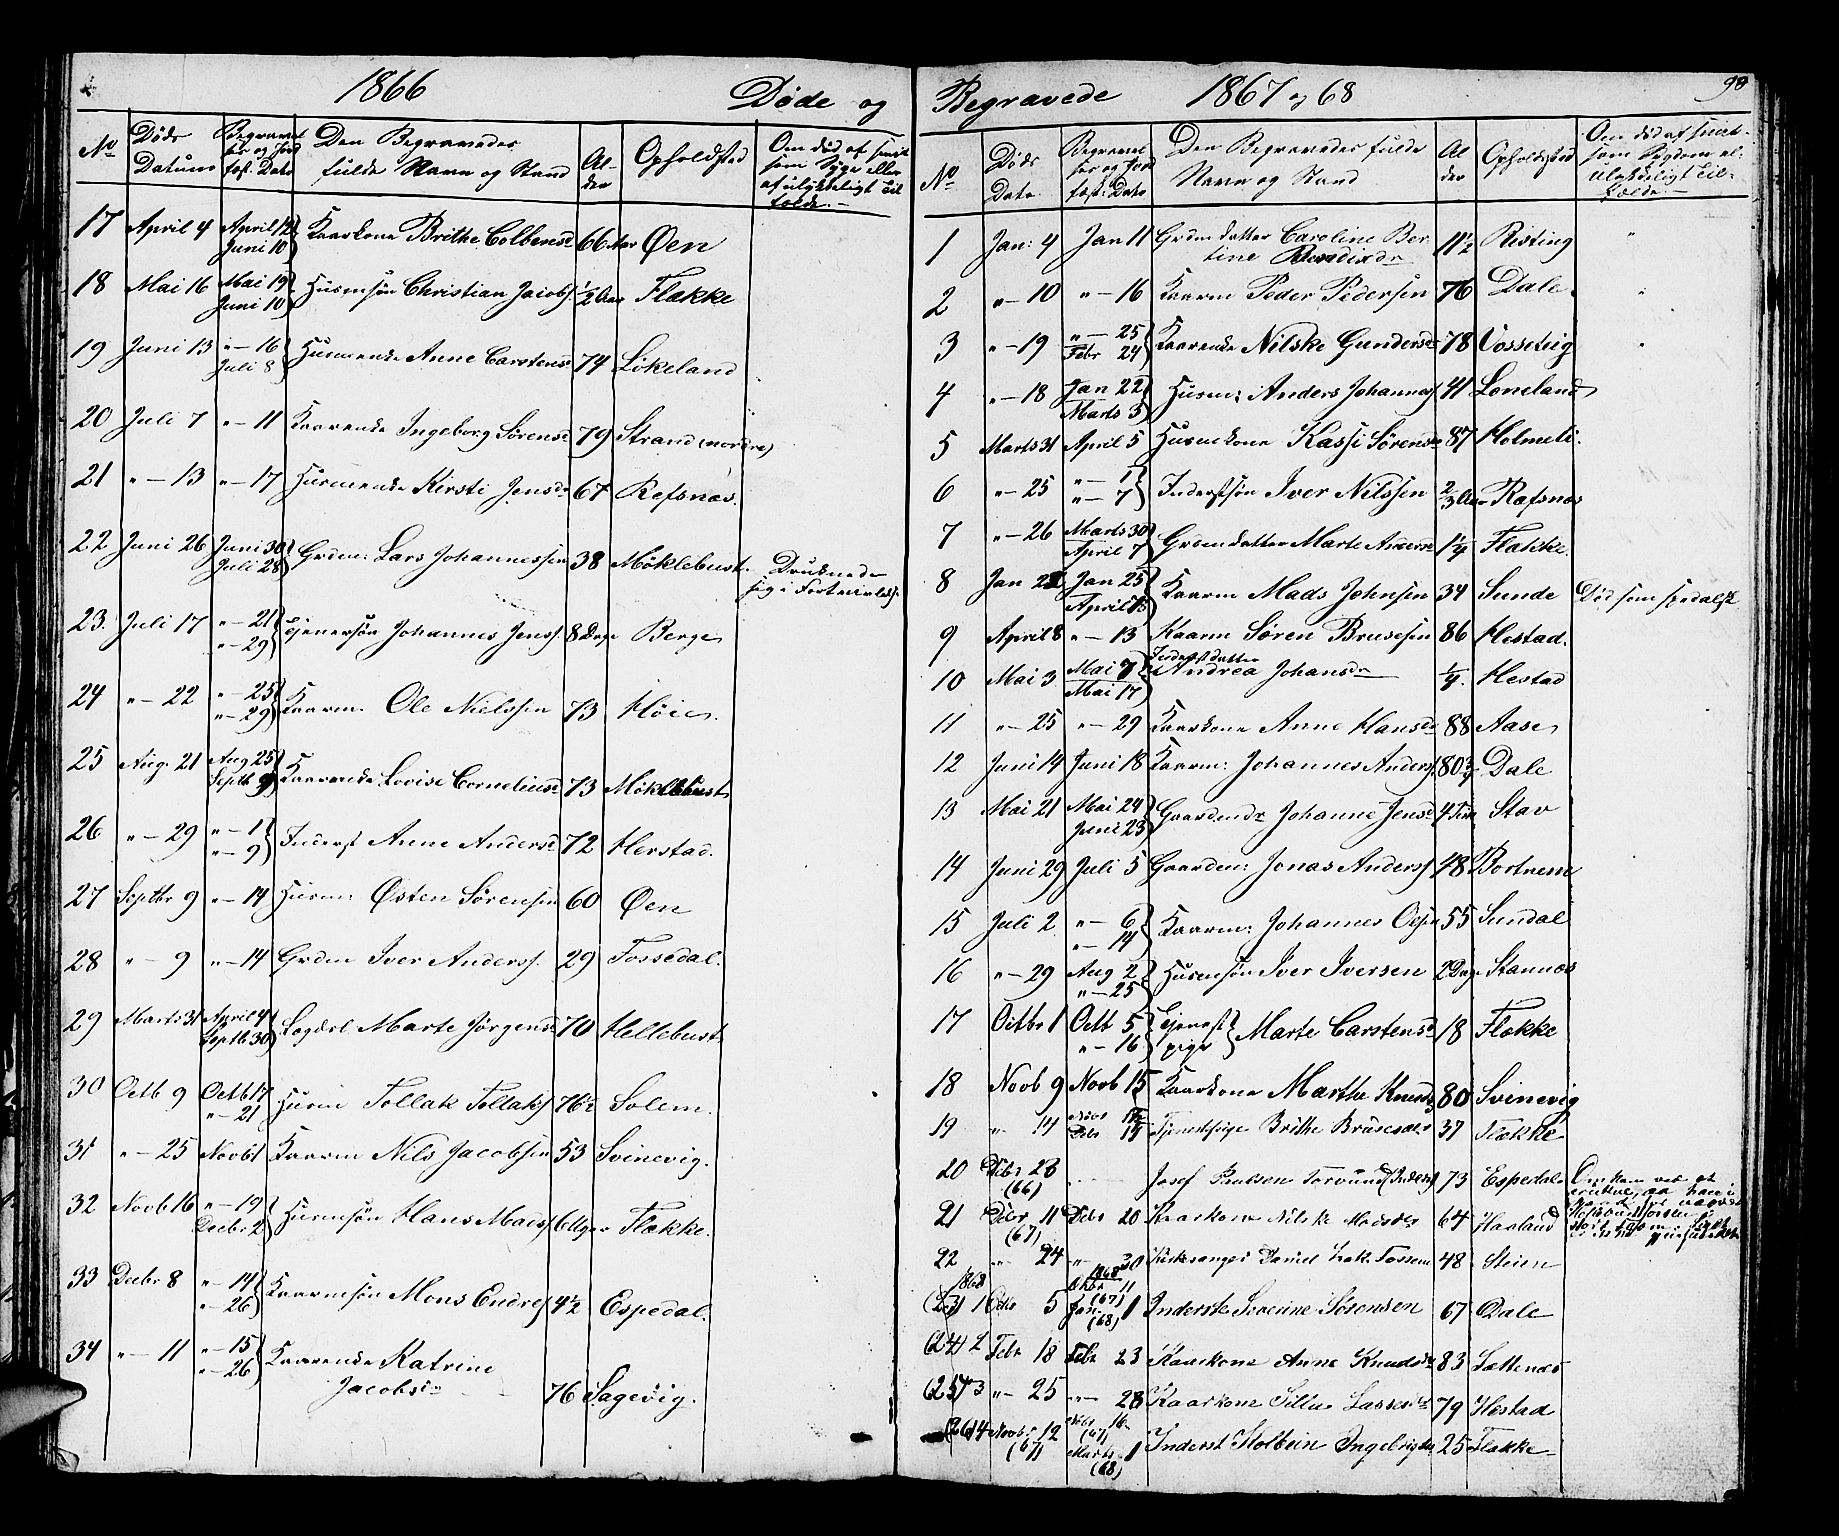 1866
Døde og
No
Døds Datum
Begravel ses og Jord fæst. Dato
Den Begravedes fulde Navn og Stand
Al- der
Opholdsted
Om død af smit som Syge eller af ulykkeligt til fælde.
17 April 4 April 12 Juni 10 Kaarkone Brithe Colbensd 66 Aar Øen
18 Mai 16 Mai 19 Juni 10 Husmsøn Christian Jacobs. ½ Aar Flække
19 Juni 13 "-16 Juli 8 Husmenke Anne Carstensd 74 Løkeland
20 Juli 7 "-11 Kaarenke Ingeborg Sørensd 79 Strand (nordre)
21 "-13 "-17 Husmenke Kirsti Jensd 67 Refsnæs.
22 Juni 26 Juni 30 Juli 28 Grdm: Lars Johannessen 38 Møklebust. Druknede sig i Fortvivlels.
23. Juli 17 "-21 "-29 Tjenersøn Johannes Jenss. 8 Dage Berge
24 "-22 "-25 "-29 Kaarm. Ole Nielssen 73 Høie.
25 Aug. 21 Aug 25 Septb 9 Kaarenke Lovise Corneliusd 73 Møklebust
26 "-29 "-1 "-9 Inderst Anne Andersd 72 Herstad.
27 Septbr 9 "-14 Husm: Østen Sørensen 60 Øen
28 "-9 "-14 Grdm Iver Anderss. 29 Fossedal.
29 Marts 31 April 4 Sept 16 30 Lægdsl Marte Jørgensd 70 Hellebust
30 Octb 9 Octb 17 "-21 Husm Tollak Tollaks 76½ Solem.
31 "-25 Novb 1 Kaarm Nils Jacobsen 53 Svinevig.
32 Novb 16 "-19 Decbr 2 Husmsøn Hans Mads 6 Uger Flække.
33 Decbr 8 "-14 "-26 Kaarmsøn Mons Endres 4½ Espedal.
34 "-11 "-15 "-26 Kaarenke Katrine
Jacobsd 76 Sagevig.
Begravede 1867 og 68
98
No
Døds Dato
Begravel ses og Jord fæst. Dato
Den Begravedes fulde Navn og Stand
Al der
Opholdsted
Om død af smit- som Sygdom el: ulykkeligt til- fælde.
1 Jan: 4 Jan 11 Grdmdatter Caroline Ber
tine Bendixdr 11½ Risting "
2 "-10 "-16 Kaarm Peder Pedersen 76 Dale. "
3 "-19 "-25 Febr 24 Kaarenke Nilske Gundersd 78 Vossevig "
4 "-18 Jan 22 Marts 3 Husm: Anders Johannes 41 Loneland
5 Marts 31 April 5 Husmkone Kassi Sørensd 87 Holmeli.
6 "-25 "-1 "-7 Inderstsøn Iver Nilssen 2/3 Aar Refsnæs
7 "-26 Marts 30 April 7 Grdmdatter Marte Andersd 1¼ Flække.
8 Jan 21 Jan 25 April 7 Kaarm Mads Johnsen 34 Sunde Død som spedalsk
9 April 8 "-13 Kaarm Søren Brusesen 86 Hestad.
10 Mai 3 Mai 7 Mai 17 Inderstdatter Andrea Johansdr ¼ Hestad
11 "-25 "-29 Kaarkone Anne Hansd 88 Aase
12 Juni 14 Juni 18 Kaarm: Johannes Anders. 80 Dale
13 Mai 21 Mai 24 Juni 23 Gaardmdr Johanne Jensd 4 Tim Stav
14 Juni 29 Juli 5 Gaardm: Jonas Anderss 48 Bortnem
15 Juli 2 "-6 "-14 Kaarm: Johannes 55 Sundal
16 "-29 Aug 2 "-25 Husmsøn Iver Iversen 2 Dage Stannæs
17 Octbr 1 Octb 5 "-16 Tjenest pige Marte Carstensd 18 Flække
18 Novb 9 Novb 15 Kaarkone Marthe Knudsd 80 Svinevig
19 " 14 Novb Debr 15 Tjenestpige Brithe Brusesd 37 Flække
20 Debr 28 (66) Josef Paulsen Torvund (Inderst) 73 Espedal Omkom ved
21 Debr 11 (67) Debr 20 Kaarkone Nilske Madsdr 64 Haaland
22 " 24 "-30 Kirkesanger Daniel Fossem 48 Steien
1868
(23) 1 Octbr 5 (67) Jan 1 (68) Inderste Severine Sørensen 67 Dale
(24) 2 Febr 18 Febr 23 Kaarkone Anne Knudsdr 83 Sættenæs
(25) 3 "-25 "-28 Kaarkone Silla Lassesdr 79 Hestad
(26) 4 Novb: 12 (67) Novb 16 (67) Marts 1 (68) Inderst Holbein Ingebrigts 25 Flække